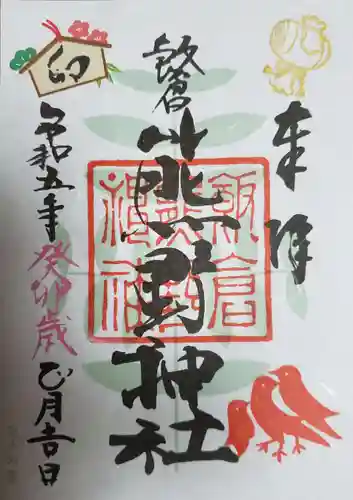 奉拝
飯倉
熊野神社
飯倉
熊野
神社
令和五年
癸卯歳
正月吉日
卯